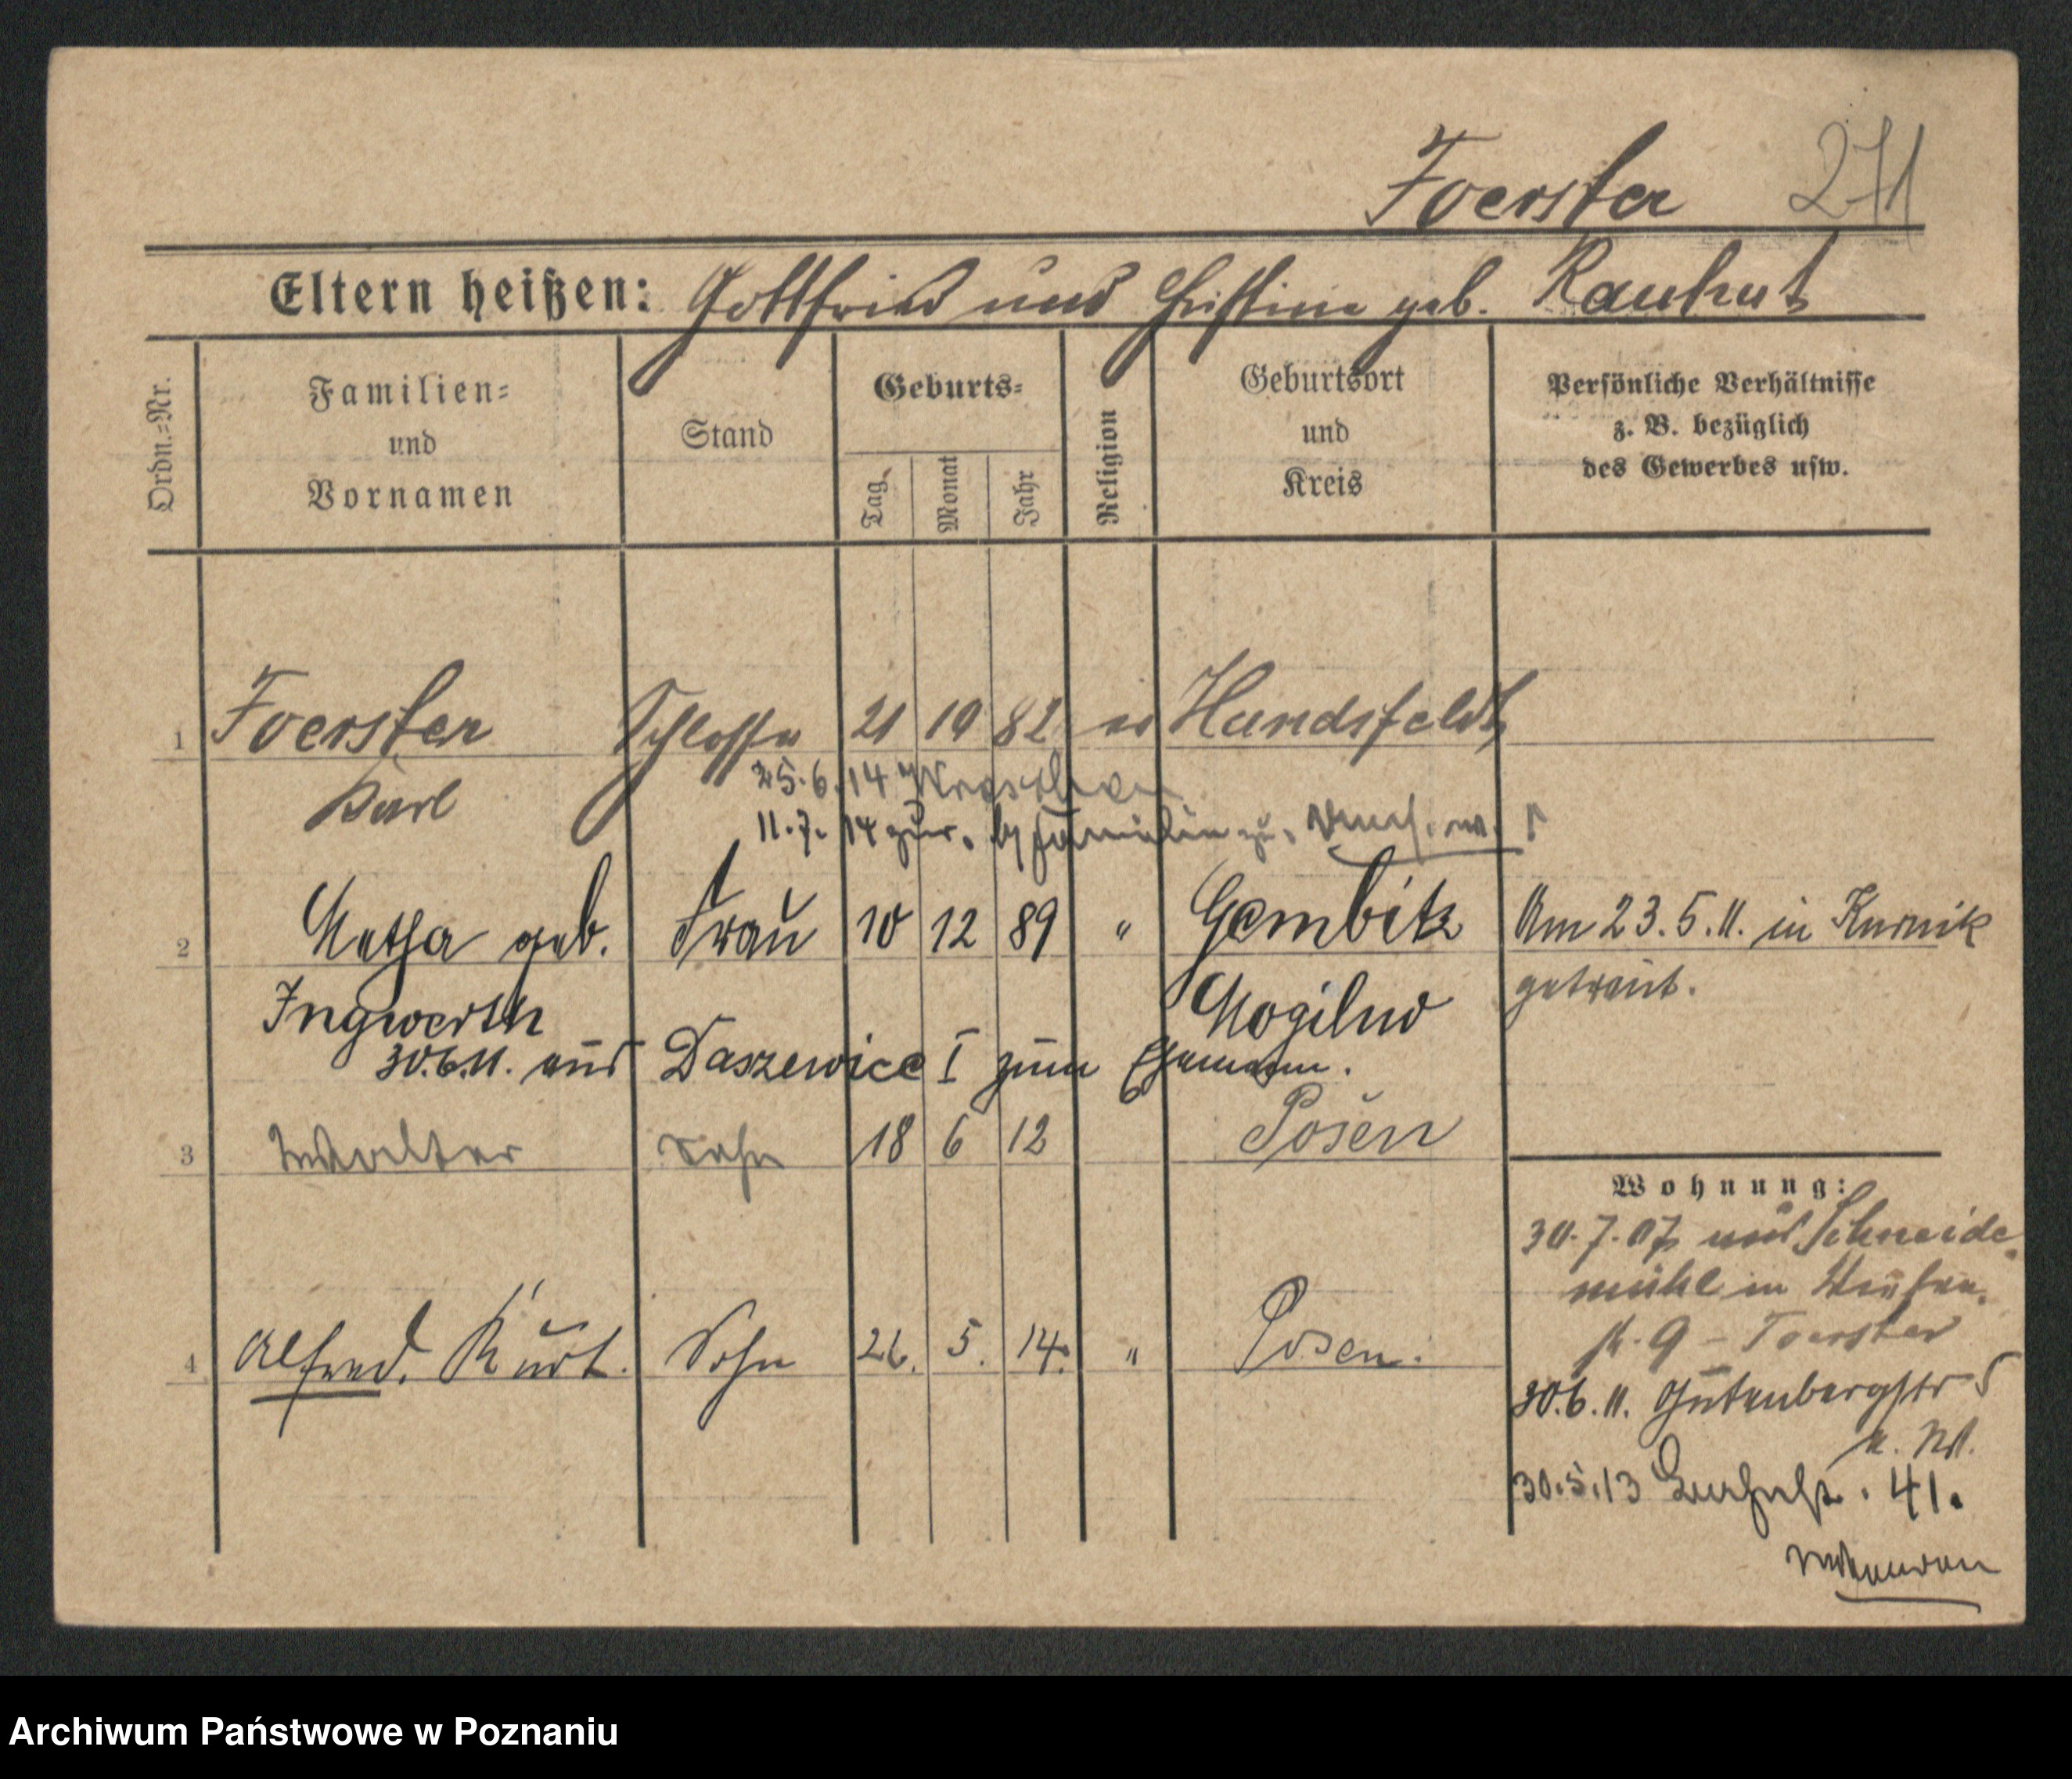 Foerster 271
Eltern heißen: Gottfried und Christine geb. Rauhut
Ordn.=Nr.
Familien=
und
Vornamen
Stand
Geburts=
Tag
Monat
Jahr
Religion
Geburtsort
und
Kreis
Persönliche Verhältnisse
z. B. bezüglich
des Gewerbes usw.
1 Foerster Schlosser 21 10 82 ev Handsfeld
Karl
25.6.14
11.7.14 zur. Familie
2 Metha geb. Frau 10 12 89 " Gembitz Am 23.5.11. in Kurnik
Ingwerth Mogilno getraut.
30.6.11. aus Daszewice I zum Ehemann.
3 Walter Sohn 18 6 12 Posen
Wohnung:
30.7.07 aus Schneide
mühl in
9 - Foerster
4 Alfred, Kurt. Sohn 26. 5. 14. " Posen.
30.6.11. Gutenbergstr 5
30.5.13 41.
Archiwum Państwowe w Poznaniu